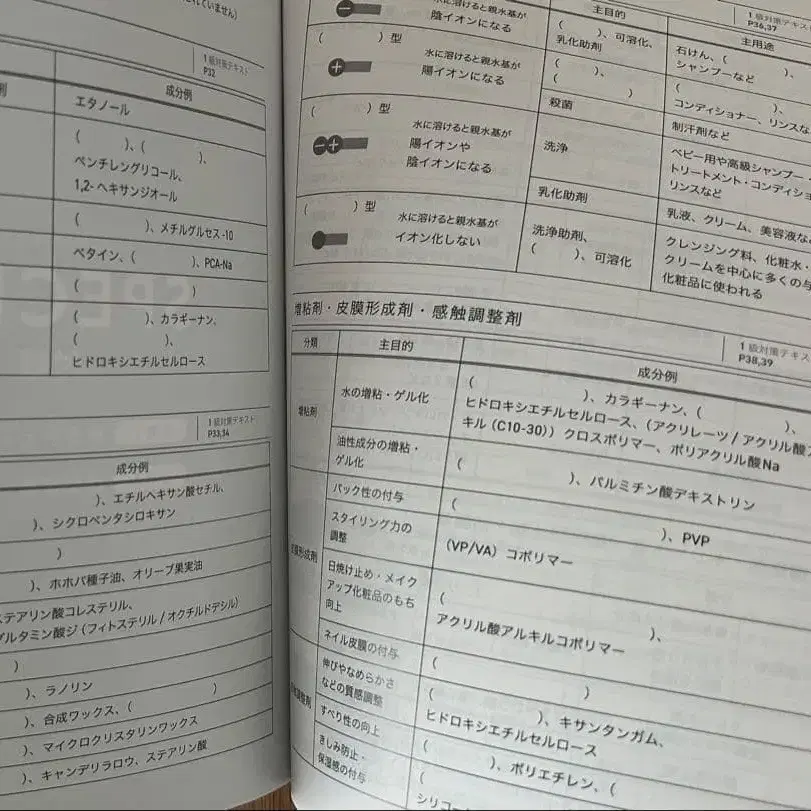 れていません)
1級対策テキスト
P32
剤
成分例
エタノール
(　　　)、(　　　)、
ペンチレングリコール、
1,2-ヘキサンジオール
(　　　)、メチルグルセス-10
ベタイン、(　　　)、PCA-Na
(　　　)
(　　　)、カラギーナン、
(　　　)、
ヒドロキシエチルセルロース
1級対策テキスト
P33,34
成分例
)、エチルヘキサン酸セチル、
)、シクロペンタシロキサン
)
)、ホホバ種子油、オリーブ果実油
ステアリン酸コレステリル、
グルタミン酸ジ(フィトステリル/オクチルドデシル)
)
)、ラノリン
)、合成ワックス、(　　　)
)、マイクロクリスタリンワックス
)、キャンデリラロウ、ステアリン酸
1級対策テキスト
P36,37
主目的
主用途
−
陰イオンになる
(　　　)、可溶化、
乳化助剤
石けん、(　　　)、
シャンプーなど
(　　　)型
+
水に溶けると親水基が
陽イオンになる
(　　　)、
(　　　)
殺菌
(　　　)、
コンディショナー、リンスな
制汗剤など
(　　　)型
−+
水に溶けると親水基が
陽イオンや
陰イオンになる
洗浄
乳化助剤
ベビー用や高級シャンプー・
トリートメント・コンディショ
リンスなど
乳液、クリーム、美容液な
(　　　)型
水に溶けると親水基が
イオン化しない
洗浄助剤、
(　　　)、可溶化
クレンジング料、化粧水・
クリームを中心に多くの
化粧品に使われる
増粘剤・皮膜形成剤・感触調整剤
1級対策テキス
P38,39
分類
主目的
成分例
増粘剤
水の増粘・ゲル化
(　　　)、カラギーナン、(　　　)、
ヒドロキシエチルセルロース、(アクリレーツ/アクリル酸ア
キル(C10-30))クロスポリマー、ポリアクリル酸Na
油性成分の増粘・
ゲル化
(　　　)、パルミチン酸デキストリン
皮膜形成剤
パック性の付与
(　　　)、PVP
スタイリング力の
調整
(VP/VA)コポリマー
日焼け止め・メイク
アップ化粧品のもち
向上
(　　　)、
アクリル酸アルキルコポリマー
ネイル皮膜の付与
(　　　)
感触調整剤
伸びやなめらかさ
などの質感調整
(　　　)、キサンタンガム、
ヒドロキシエチルセルロース
すべり性の向上
(　　　)、ポリエチレン、(
きしみ防止・
保湿感の付与
(
シリコー